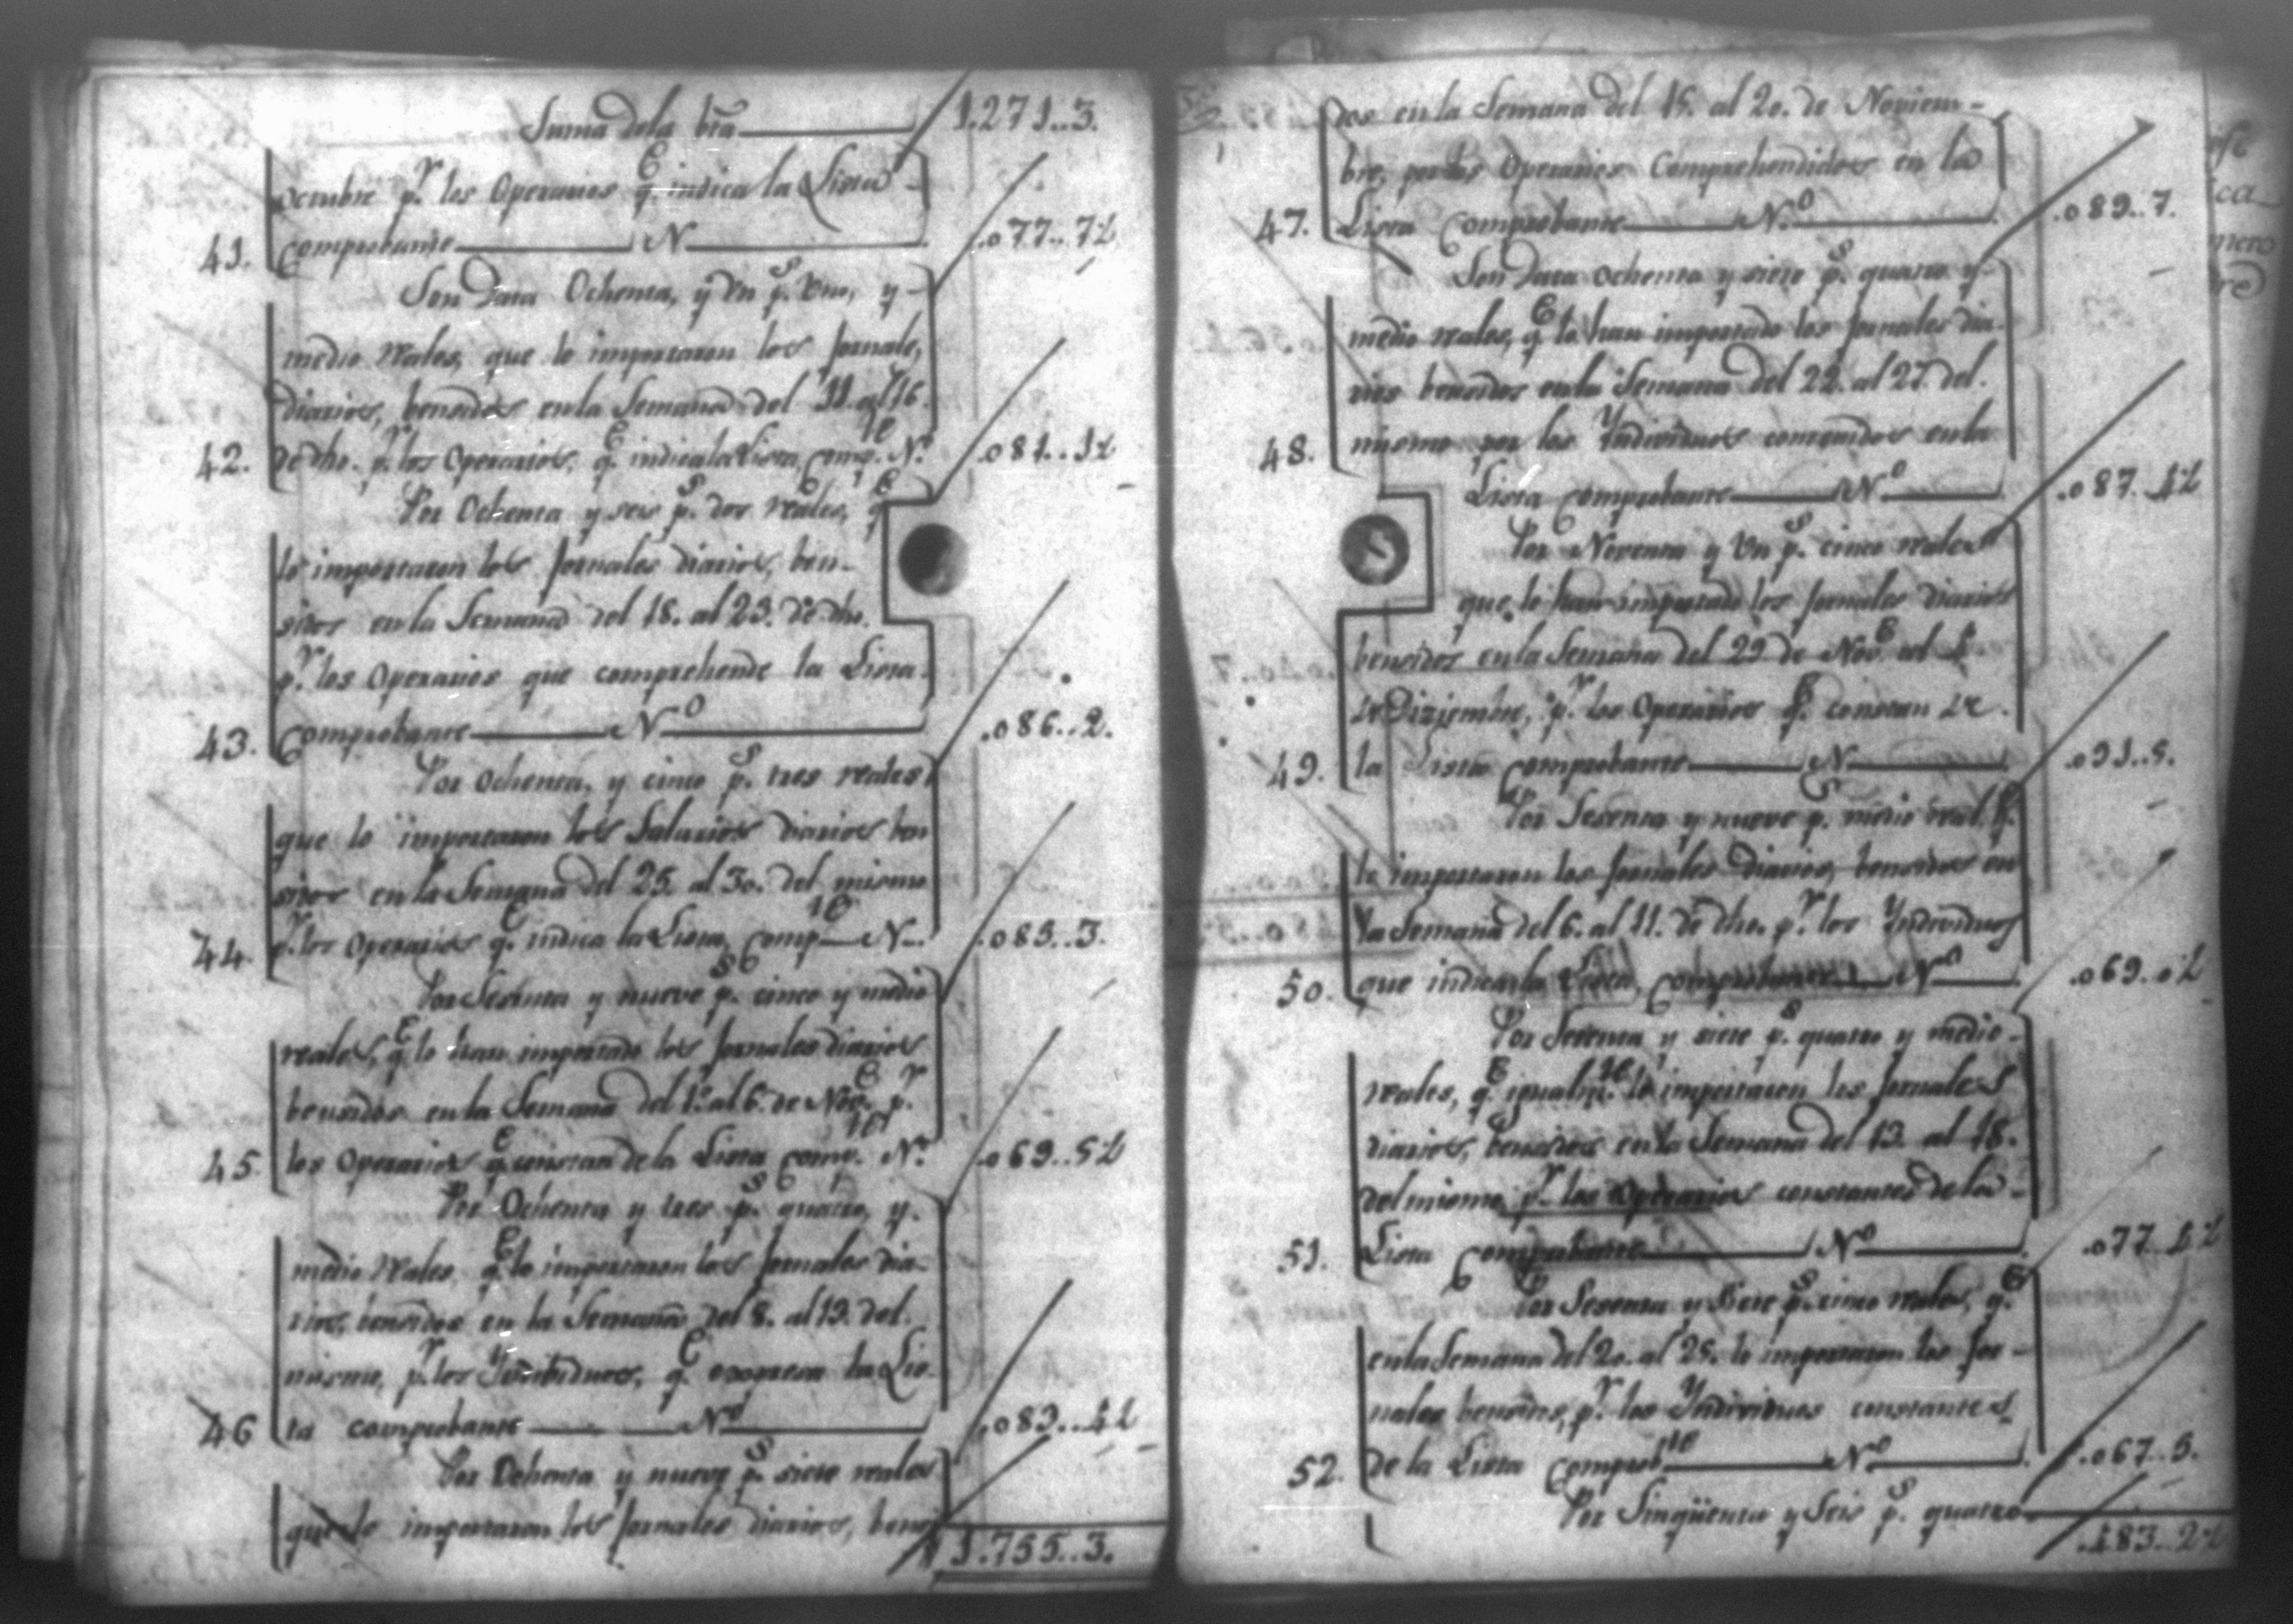 Suma dela bta 1.271..3.
octubre pr. los Operarios qe. indica la Lista
41. comprobante N .077..7½
Son Data Ochenta, y un ps. uno, y
medio reales, que le importaron los Jornale,
diarios, bensidos en la Semana del 11. al 16.
42. de dho. pr. los Operarios, qe. indica la Lista, compte. No. .081..1½
Por Ochenta y seis ps. dos reales, qe
le importaron los Jornales diarios, ben-
sidos en la Semana del 18. al 23. de dho.
pr. los Operarios que comprehende la Lista
43. comprobante No .086..2.
Por ochenta, y cinco ps. tres reales
que le importaron los Salarios diarios ben
sidos en la Semana del 25. al 30. del mismo
44. pr. los Operarios qe. indica la Lista, compte N. .085..3.
Por Sesenta y nueve ps. cinco y medio
reales, qe. le han importado los Jornales diarios
bensidos en la Semana del 1o. al 6. de Nove. pr.
45 los Operarios qe. constan de la Lista compte. No. .069..5½
Por Ochenta y tres ps. quatro, y
medio reales qe. le importaron los Jornales dia-
rios, bensidos en la Semana del 8. al 13. del
mismo, pr. los Yndividuos, qe. expresa la Lis-
46 ta comprobante No .083..4½
Por Ochenta y nueve ps. siete reales
que le importaron los Jornales diarios, bensi
1.755..3.
dos en la Semana del 15. al 20. de Noviem-
bre, por los Operarios Comprehendidos en la
47. Lista Comprobante No. .089..7.
Son Data ochenta y siete ps. quatro y
medio reales, qe. le han importado los Jornales dia-
rios bensidos en la Semana del 22. al 27. del
48. mismo por los Yndividuos contenidos en la
Lista comprobante No .087..4½
Por Noventa y un ps. cinco reales
que le han importado los Jornales diarios
bensidos en la Semana del 29 de Nove. al 4
de Diziembre, pr. los Operarios qe. constan de
49. la Lista comprobante N .091..5.
Por Sesenta y nueve ps. medio real, qe.
le importaron los Jornales diarios, bensidos en
la Semana del 6. al 11. de dho. pr. los Yndividuos
50. que indica la Lista, comprobante No .069..0½
Por Setenta y siete ps. quatro y medio
reales, qe. igualmte. le importaron los Jornales
diarios, bensidos en la Semana del 13. al 18.
del mismo, pr. los Operarios constantes de la
51. Lista Comprobante No .077..4½
Por Sesenta y Siete ps. cinco reales, qe.
en la Semana del 20. al 25. le importaron los Jor-
nales bensidos, pr. los Yndividuos constantes
52. de la Lista comprobte No .067..5.
Por Sinqüenta y Seis ps. quatro
.483..2½